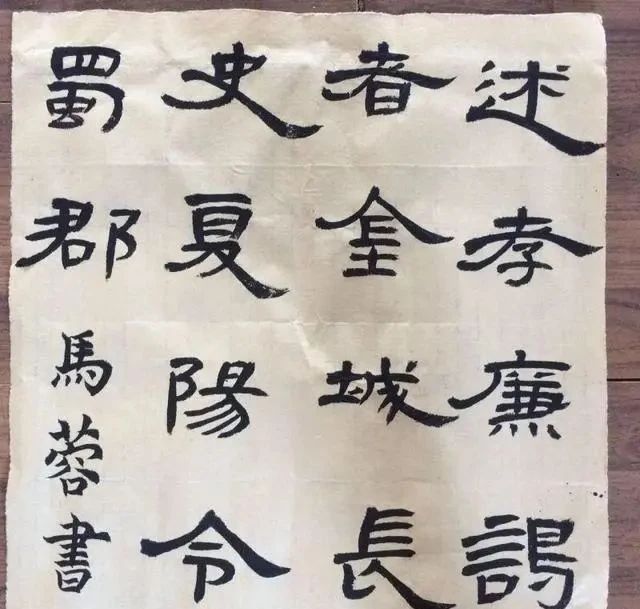 述孝廉謁
者金城長
史夏陽令
蜀郡馬蓉書